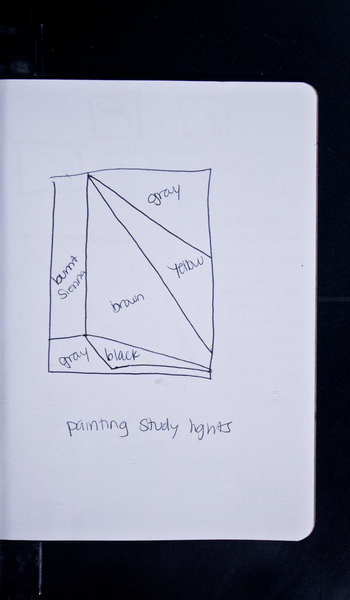 gray
Yellow
burnt
Sienna
brown
gray
black
painting study lights